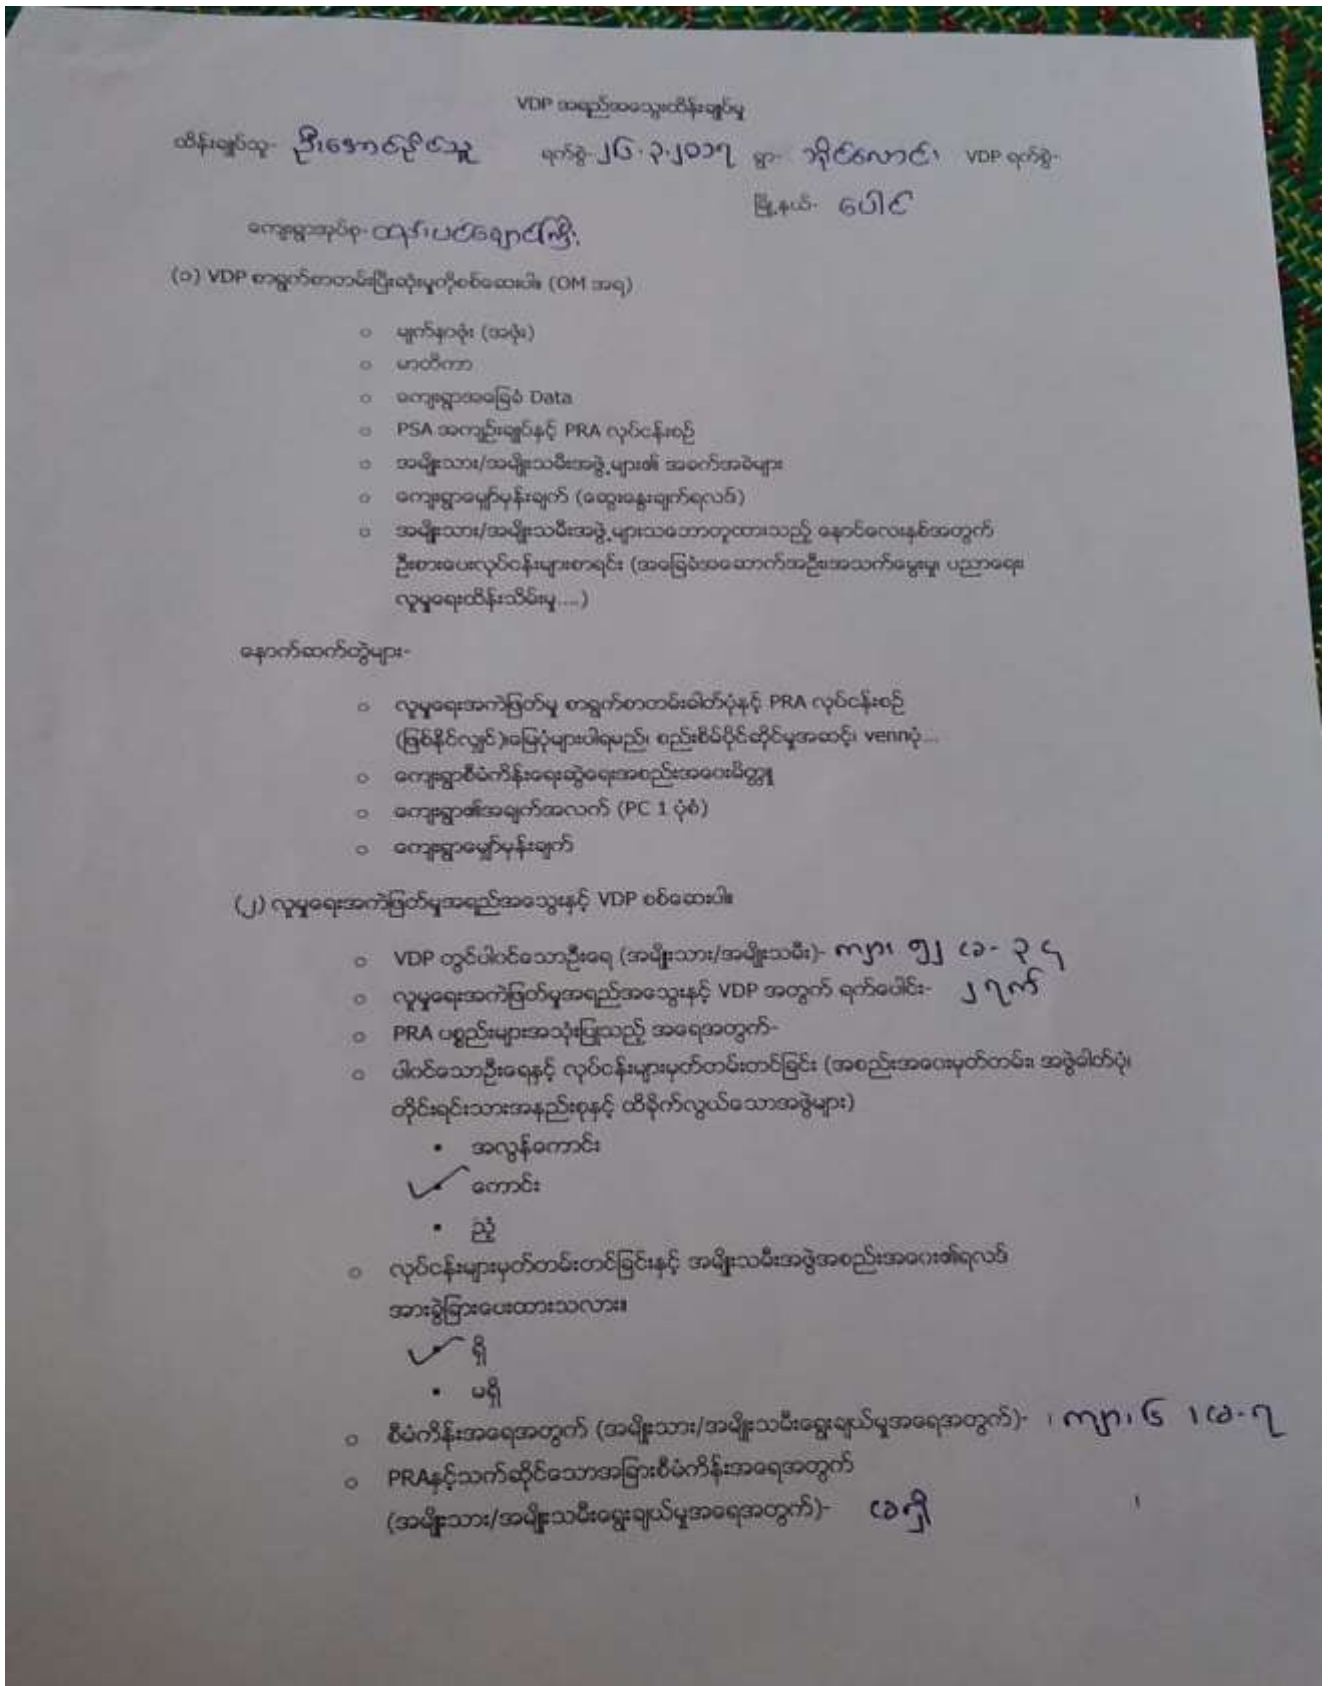 VDP အရည်အသွေးထိန်းချုပ်မှု
ထိန်းချုပ်သူ- ဦးအောင်နိုင်သူ ရက်စွဲ- ၂၆.၃.၂၀၁၇ ရွာ- VDP ရက်စွဲ-
မြို့နယ်- ပေါင်
ကျေးရွာအုပ်စု-
(၁) VDP စာရွက်စာတမ်းပြီးဆုံးမှုကိုစစ်ဆေးပါ။ (OM အရ)
○ မျက်နှာဖုံး (အဖုံး)
○ မာတိကာ
○ ကျေးရွာအခြေခံ Data
○ PSA အကျဉ်းချုပ်နှင့် PRA လုပ်ငန်းစဉ်
○ အမျိုးသား/အမျိုးသမီးအဖွဲ့များ၏ အခက်အခဲများ
○ ကျေးရွာမျှော်မှန်းချက် (ဆွေးနွေးချက်ရလဒ်)
○ အမျိုးသား/အမျိုးသမီးအဖွဲ့များသဘောတူထားသည့် နောင်လေးနှစ်အတွက်
ဦးစားပေးလုပ်ငန်းများစာရင်း (အခြေခံအဆောက်အဦး၊အသက်မွေးမှု၊ ပညာရေး၊
လူမှုရေးထိန်းသိမ်းမှု....)
နောက်ဆက်တွဲများ-
○ လူမှုရေးအကဲဖြတ်မှု စာရွက်စာတမ်းဓါတ်ပုံနှင့် PRA လုပ်ငန်းစဉ်
(ဖြစ်နိုင်လျှင်)မြေပုံများပါရမည်၊ စည်းစိမ်ပိုင်ဆိုင်မှုအဆင့်၊ vennပုံ...
○ ကျေးရွာစီမံကိန်းရေးဆွဲရေးအစည်းအဝေးမိတ္တူ
○ ကျေးရွာ၏အချက်အလက် (PC 1 ပုံစံ)
○ ကျေးရွာမျှော်မှန်းချက်
(၂) လူမှုရေးအကဲဖြတ်မှုအရည်အသွေးနှင့် VDP စစ်ဆေးပါ။
○ VDP တွင်ပါဝင်သောဦးရေ (အမျိုးသား/အမျိုးသမီး)- ကျား ၅၂ မ- ၃၄
○ လူမှုရေးအကဲဖြတ်မှုအရည်အသွေးနှင့် VDP အတွက် ရက်ပေါင်း- ၂ ရက်
○ PRA ပစ္စည်းများအသုံးပြုသည့် အရေအတွက်-
○ ပါဝင်သောဦးရေနှင့် လုပ်ငန်းများမှတ်တမ်းတင်ခြင်း (အစည်းအဝေးမှတ်တမ်း၊ အဖွဲဓါတ်ပုံ၊
တိုင်းရင်းသားအနည်းစုနှင့် ထိခိုက်လွယ်သောအဖွဲများ)
▪ အလွန်ကောင်း
✓ ကောင်း
▪ ညံ့
○ လုပ်ငန်းများမှတ်တမ်းတင်ခြင်းနှင့် အမျိုးသမီးအဖွဲအစည်းအဝေး၏ရလဒ်
အားခွဲခြားပေးထားသလား။
✓ ရှိ
▪ မရှိ
○ စီမံကိန်းအရေအတွက် (အမျိုးသား/အမျိုးသမီးရွေးချယ်မှုအရေအတွက်)- ၊ ကျား ၆ ၊ မ-၇
○ PRAနှင့်သက်ဆိုင်သောအခြားစီမံကိန်းအရေအတွက်
(အမျိုးသား/အမျိုးသမီးရွေးချယ်မှုအရေအတွက်)- မရှိ